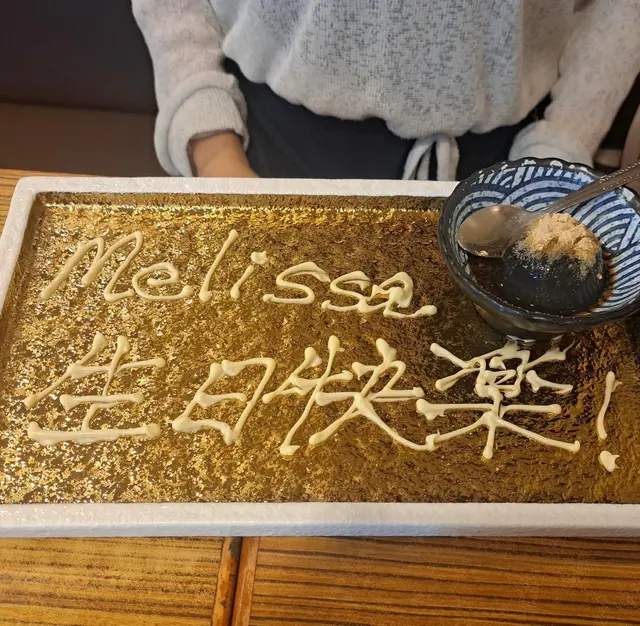 Melissa
生日快樂!